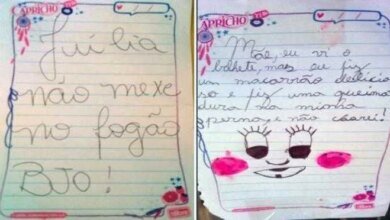 CAPRICHO
Júlia
não mexe
no fogão
BJO!
CAPRICHO
Mãe, eu vi o
bilhete, mas eu fiz
um macarrão delicio
so e fiz uma queima
dura na minha
perna, e não chorei!